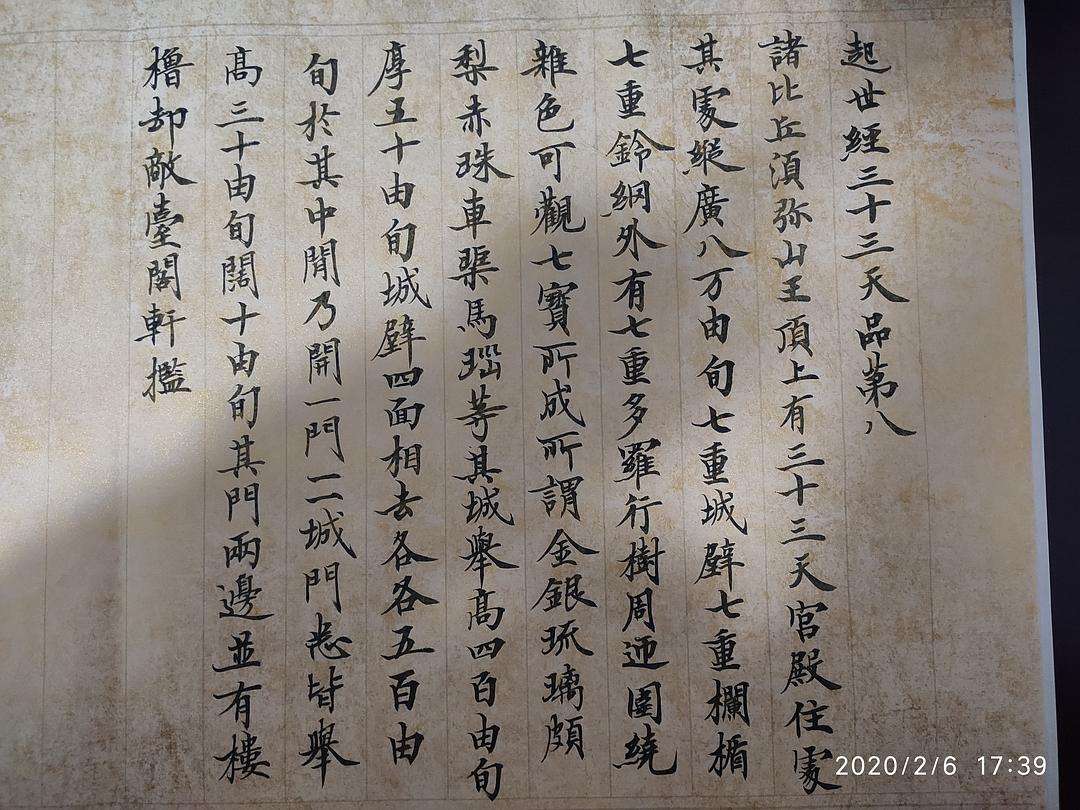 起世經三十三天品第八
諸比丘湏弥山王頂上有三十三天宮殿住處
其處縱廣八万由旬七重城壁七重欄楯
七重鈴網外有七重多羅行樹周迊圍繞
雜色可觀七寳所成所謂金銀琉璃頗
梨赤珠車𤦲馬瑙等其城舉高四百由旬
厚五十由旬城壁四面相去各各五百由
旬於其中閒乃開一門一一城門悉皆舉
高三十由旬闊十由旬其門兩邊並有樓
櫓却敵臺閣軒檻
2020/2/6 17:39